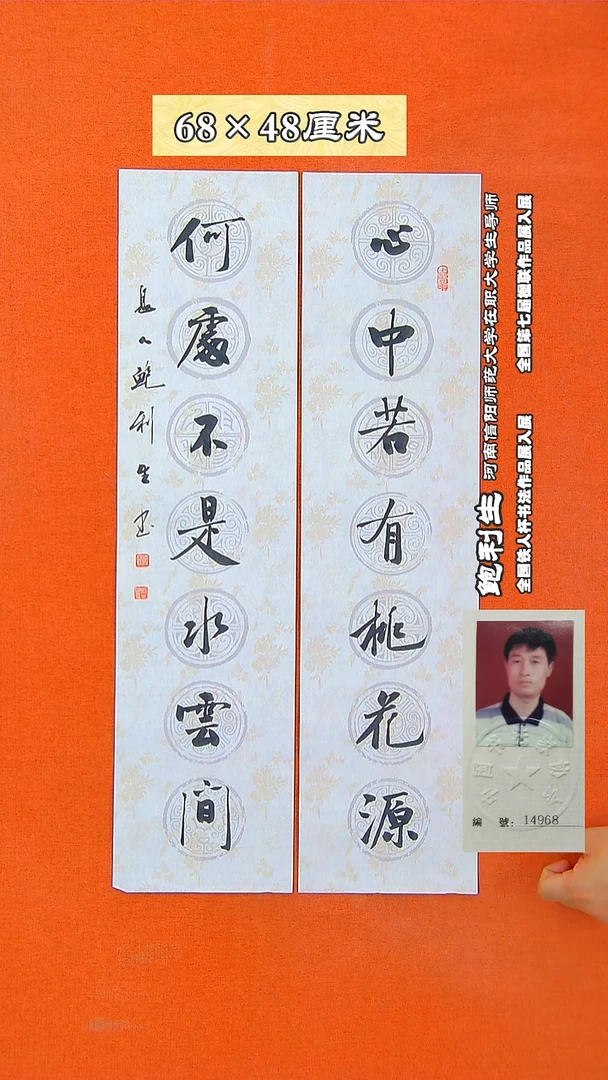 68×48厘米
心中若有桃花源
何處不是水雲間
鮑利生书
鲍利生 河南信阳师范大学在职大学生导师
全国第七届楹联作品展入展
全国铁人杯书法作品展入展
編 號: 14968